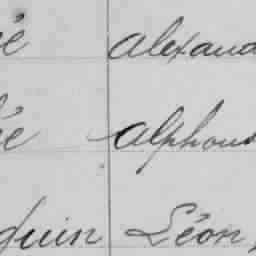 ée alexand
ée alphons
guin Léon